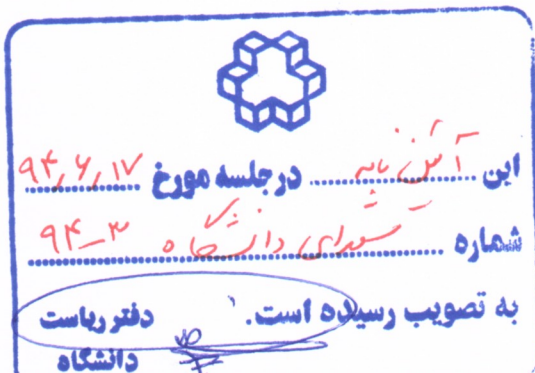 این آئین نامه در جلسه مورخ ۹۴,۶,۱۷
شماره ۹۴_۳ شورای دانشگاه
به تصویب رسیده است.
دفتر ریاست
دانشگاه